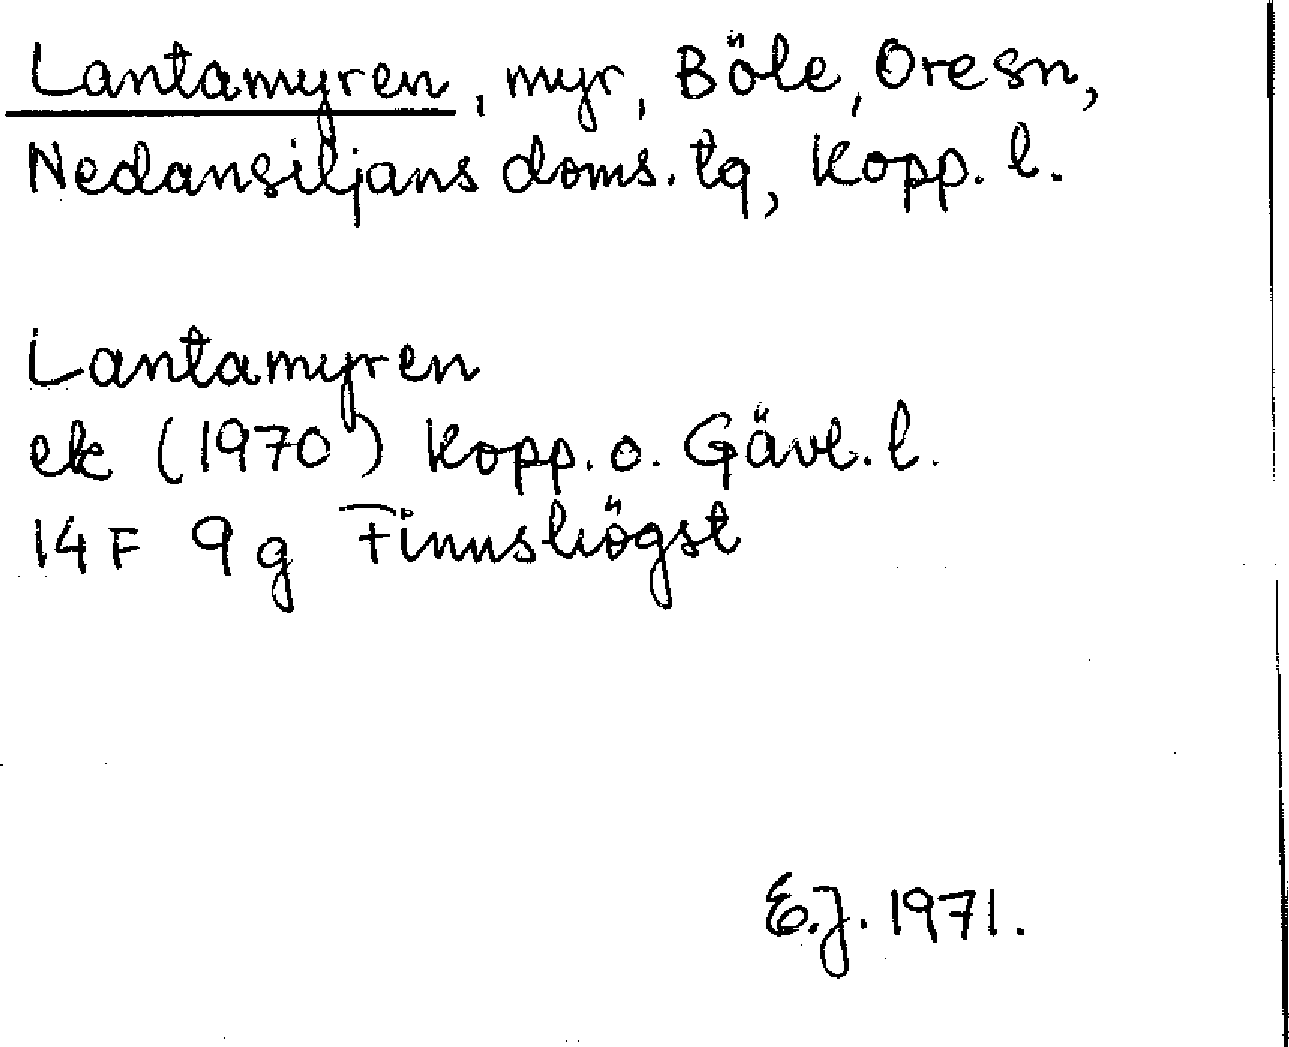 Lantamyren, myr, Böle, Oresn,
Nedansiljans doms. tg, Kopp. l.
Lantamyren
ek (1970) Kopp. o. Gävl. l.
14 F 9 g Finnskögst
E.J. 1971.